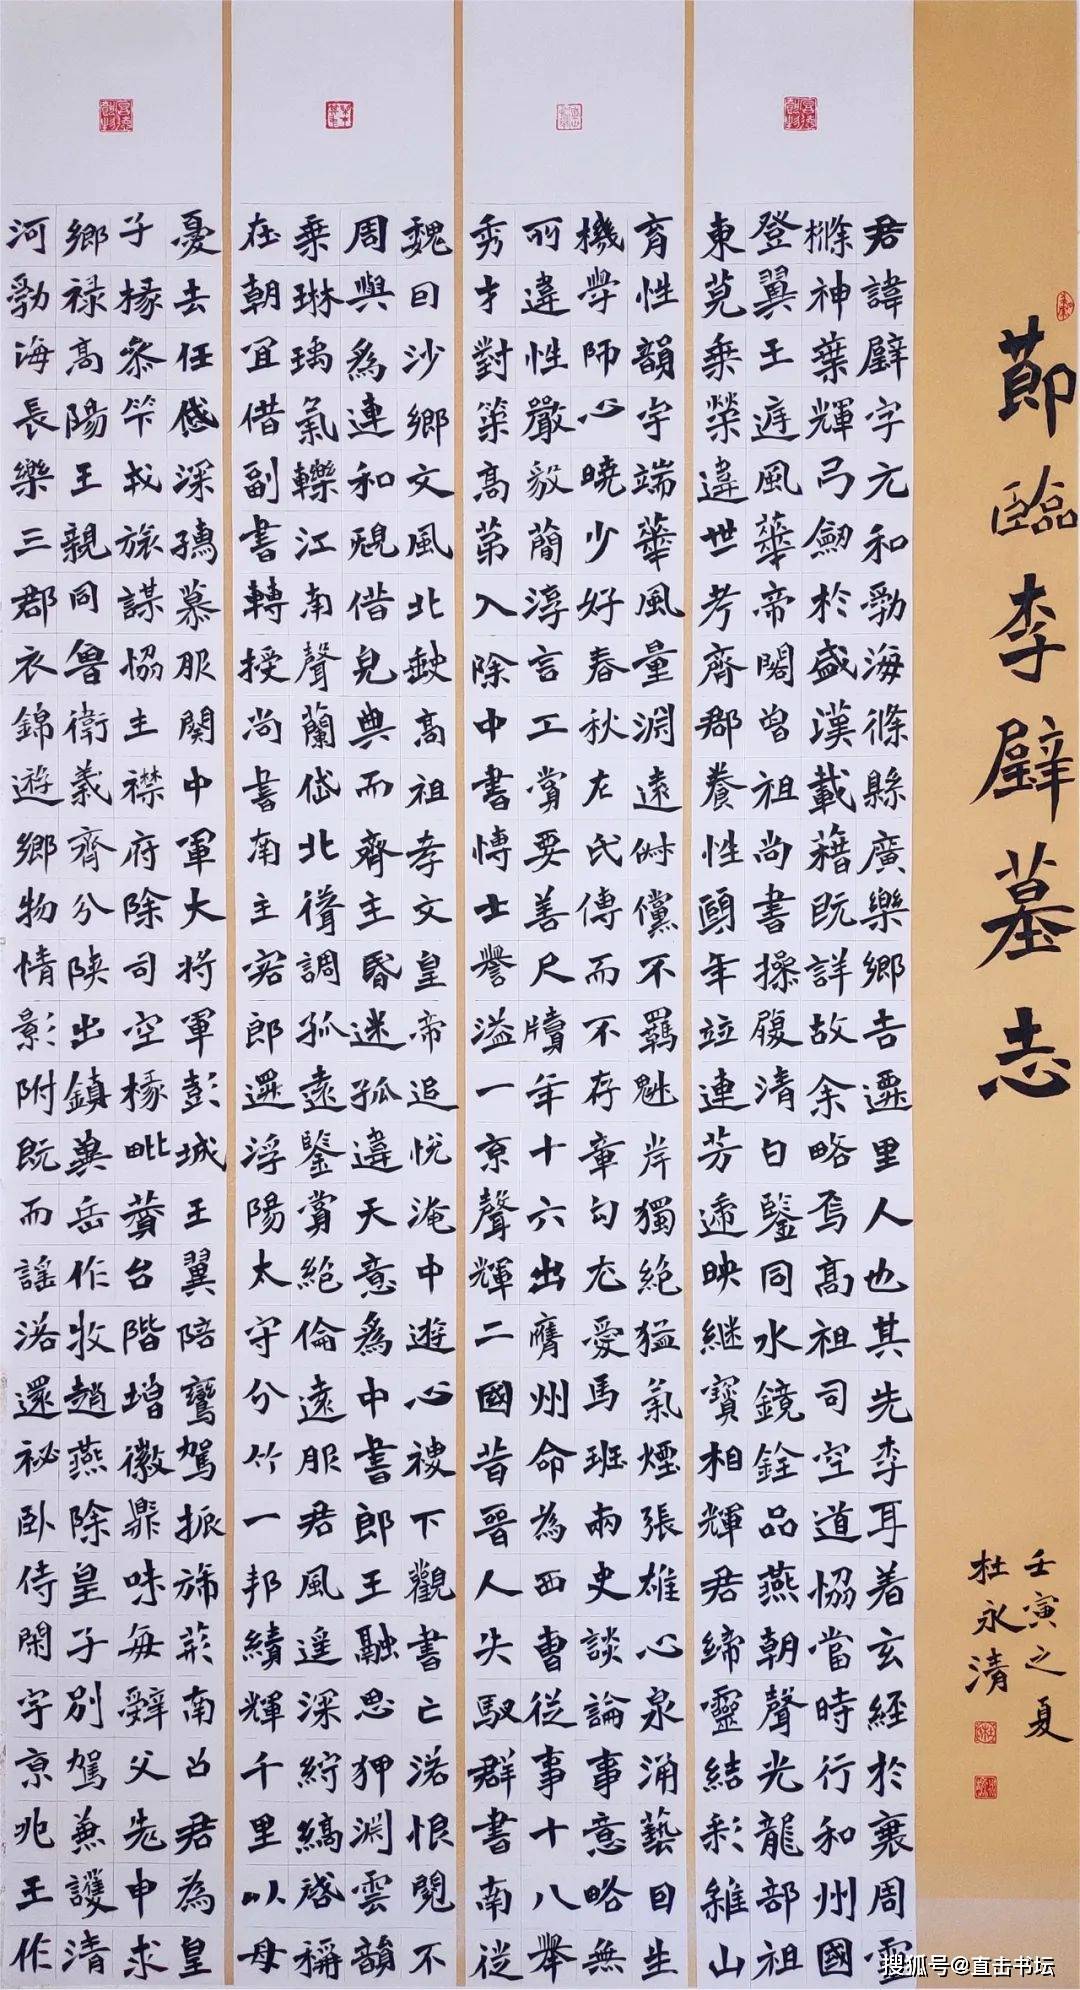 節臨李璧墓志
壬寅之夏
杜永清
君諱璧字元和勃海條縣廣樂鄉吉遷里人也其先李耳著玄經於衰周靈
㯳神葉輝弓劒於盛漢載藉既詳故余略焉高祖司空道協當時行和州國
登翼王庭風華帝閣曾祖尚書操履清白鑒同水鏡銓品燕朝聲光龍部祖
東莞乗榮違世考齊郡養性頤年竝連芳遞映繼寶相輝君締靈結彩維山
育性韻宇端華風量淵遠倜儻不羈魁岸獨絶猛氣煙張雄心泉涌藝自生
機學師心曉少好春秋左氏傳而不存章句尤愛馬班兩史談論事意略無
所違性嚴毅簡淳言工賞要善尺牘年十六出膺州命為西曹從事十八舉
秀才對策高第入除中書博士譽溢一京聲輝二國昔晉人失馭群書南徙
魏因沙鄉文風北缺高祖孝文皇帝追悅淹中遊心稷下觀書亡落恨閱不
周與為連和規借完典而齊主昏迷孤違天意為中書郎王融思狎淵雲韻
乗琳瑀氣轢江南聲蘭岱北聳調孤遠鑒賞絶倫遠服君風遥深紵縞啓稱
在朝宜借副書轉授尚書南主客郎遷浮陽太守分竹一邦績輝千里以母
憂去任岱深孺慕服闋中軍大將軍彭城王翼陪鸞駕振旆荊南召君為皇
子掾參竿戎旅謀協主襟府除司空掾毗贊台階增徽鼎味每辭父老申求
鄉祿高陽王親同魯衛義齊分陝出鎮冀岳作牧趙燕除皇子別駕兼護清
河勃海長樂三郡衣錦遊鄉物情影附既而謠落還祕卧侍閑宇京兆王作
搜狐号@直击书坛